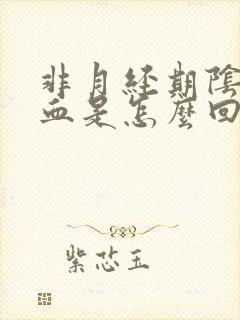 非月經期陰
血是怎麼回
紫芯玉